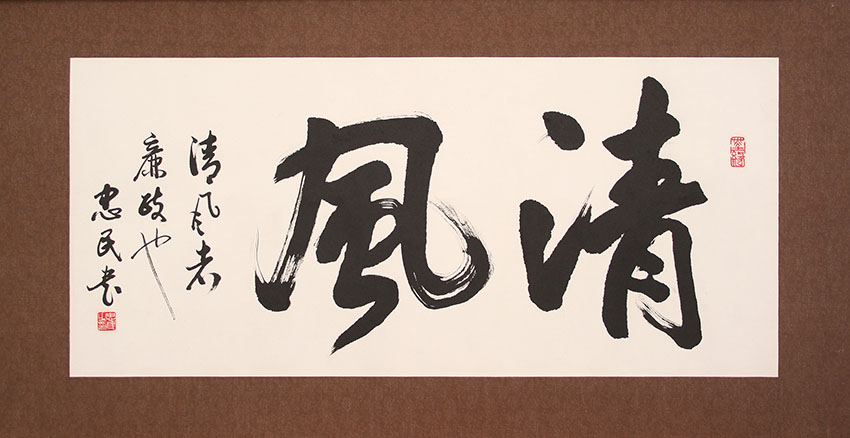 清風
清风者
廉政也
忠民书